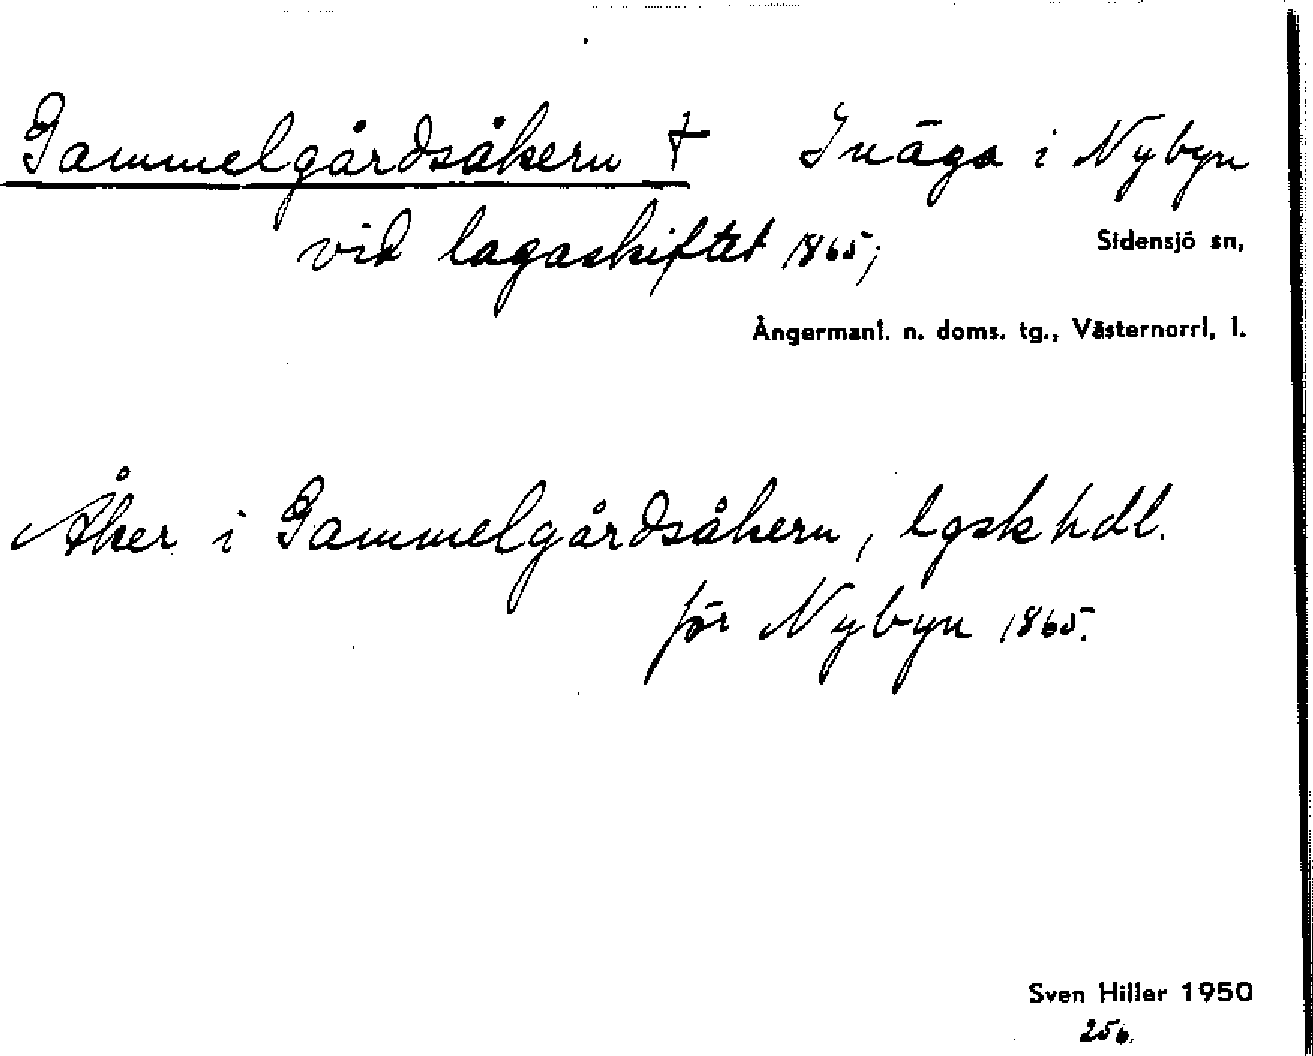 Gammelgårdsåkern † Inäga i Nybyn
vid lagaskiftet 1865;
Sidensjö sn,
Ångermanl. n. doms. tg., Västernorrl, l.
Åker i Gammelgårdsåkern, lgskhdl.
för Nybyn 1865.
Sven Hiller 1950
256.